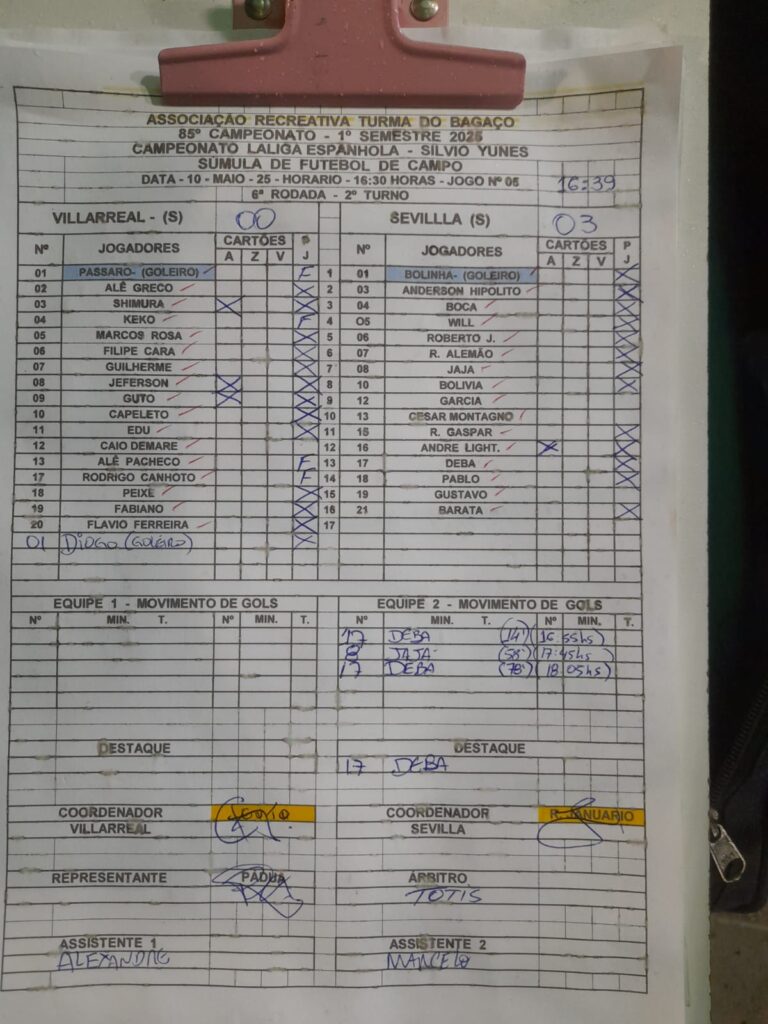 ASSOCIAÇÃO RECREATIVA TURMA DO BAGAÇO
85º CAMPEONATO - 1º SEMESTRE 2025
CAMPEONATO LALIGA ESPANHOLA - SILVIO YUNES
SÚMULA DE FUTEBOL DE CAMPO
DATA - 10 - MAIO - 25 - HORARIO - 16:30 HORAS - JOGO Nº 05 16:39
6ª RODADA - 2º TURNO
VILLARREAL - (S) 00 SEVILLLA (S) 03
Nº JOGADORES CARTÕES P Nº JOGADORES CARTÕES P
A Z V J A Z V J
01 PASSARO- (GOLEIRO) F 1 01 BOLINHA- (GOLEIRO) X
02 ALÊ GRECO X 2 03 ANDERSON HIPOLITO X
03 SHIMURA X X 3 04 BOCA X
04 KEKO F 4 O5 WILL X
05 MARCOS ROSA X 5 06 ROBERTO J. X
06 FILIPE CARA X 6 07 R. ALEMÃO X
07 GUILHERME X 7 08 JAJA X
08 JEFERSON X X 8 10 BOLIVIA X
09 GUTO X X 9 12 GARCIA
10 CAPELETO X 10 13 CESAR MONTAGNO
11 EDU X 11 15 R. GASPAR X
12 CAIO DEMARE 12 16 ANDRE LIGHT. X X
13 ALÊ PACHECO F 13 17 DEBA X
17 RODRIGO CANHOTO F 14 18 PABLO X
18 PEIXE X 15 19 GUSTAVO
19 FABIANO X 16 21 BARATA X
20 FLAVIO FERREIRA X 17
01 DIOGO (GOLEIRO) X
EQUIPE 1 - MOVIMENTO DE GOLS EQUIPE 2 - MOVIMENTO DE GOLS
Nº MIN. T. Nº MIN. T. Nº MIN. T. Nº MIN. T.
17 DEBA (14') (16 55hs)
8 JAJA (58') (17:45hs)
17 DEBA (78') (18 05hs)
DESTAQUE DESTAQUE
17 DEBA
COORDENADOR COORDENADOR R. JANUARIO
VILLARREAL SEVILLA
REPRESENTANTE PÁDUA ÁRBITRO
TOTIS
ASSISTENTE 1 ASSISTENTE 2
ALEXANDRE MARCELO